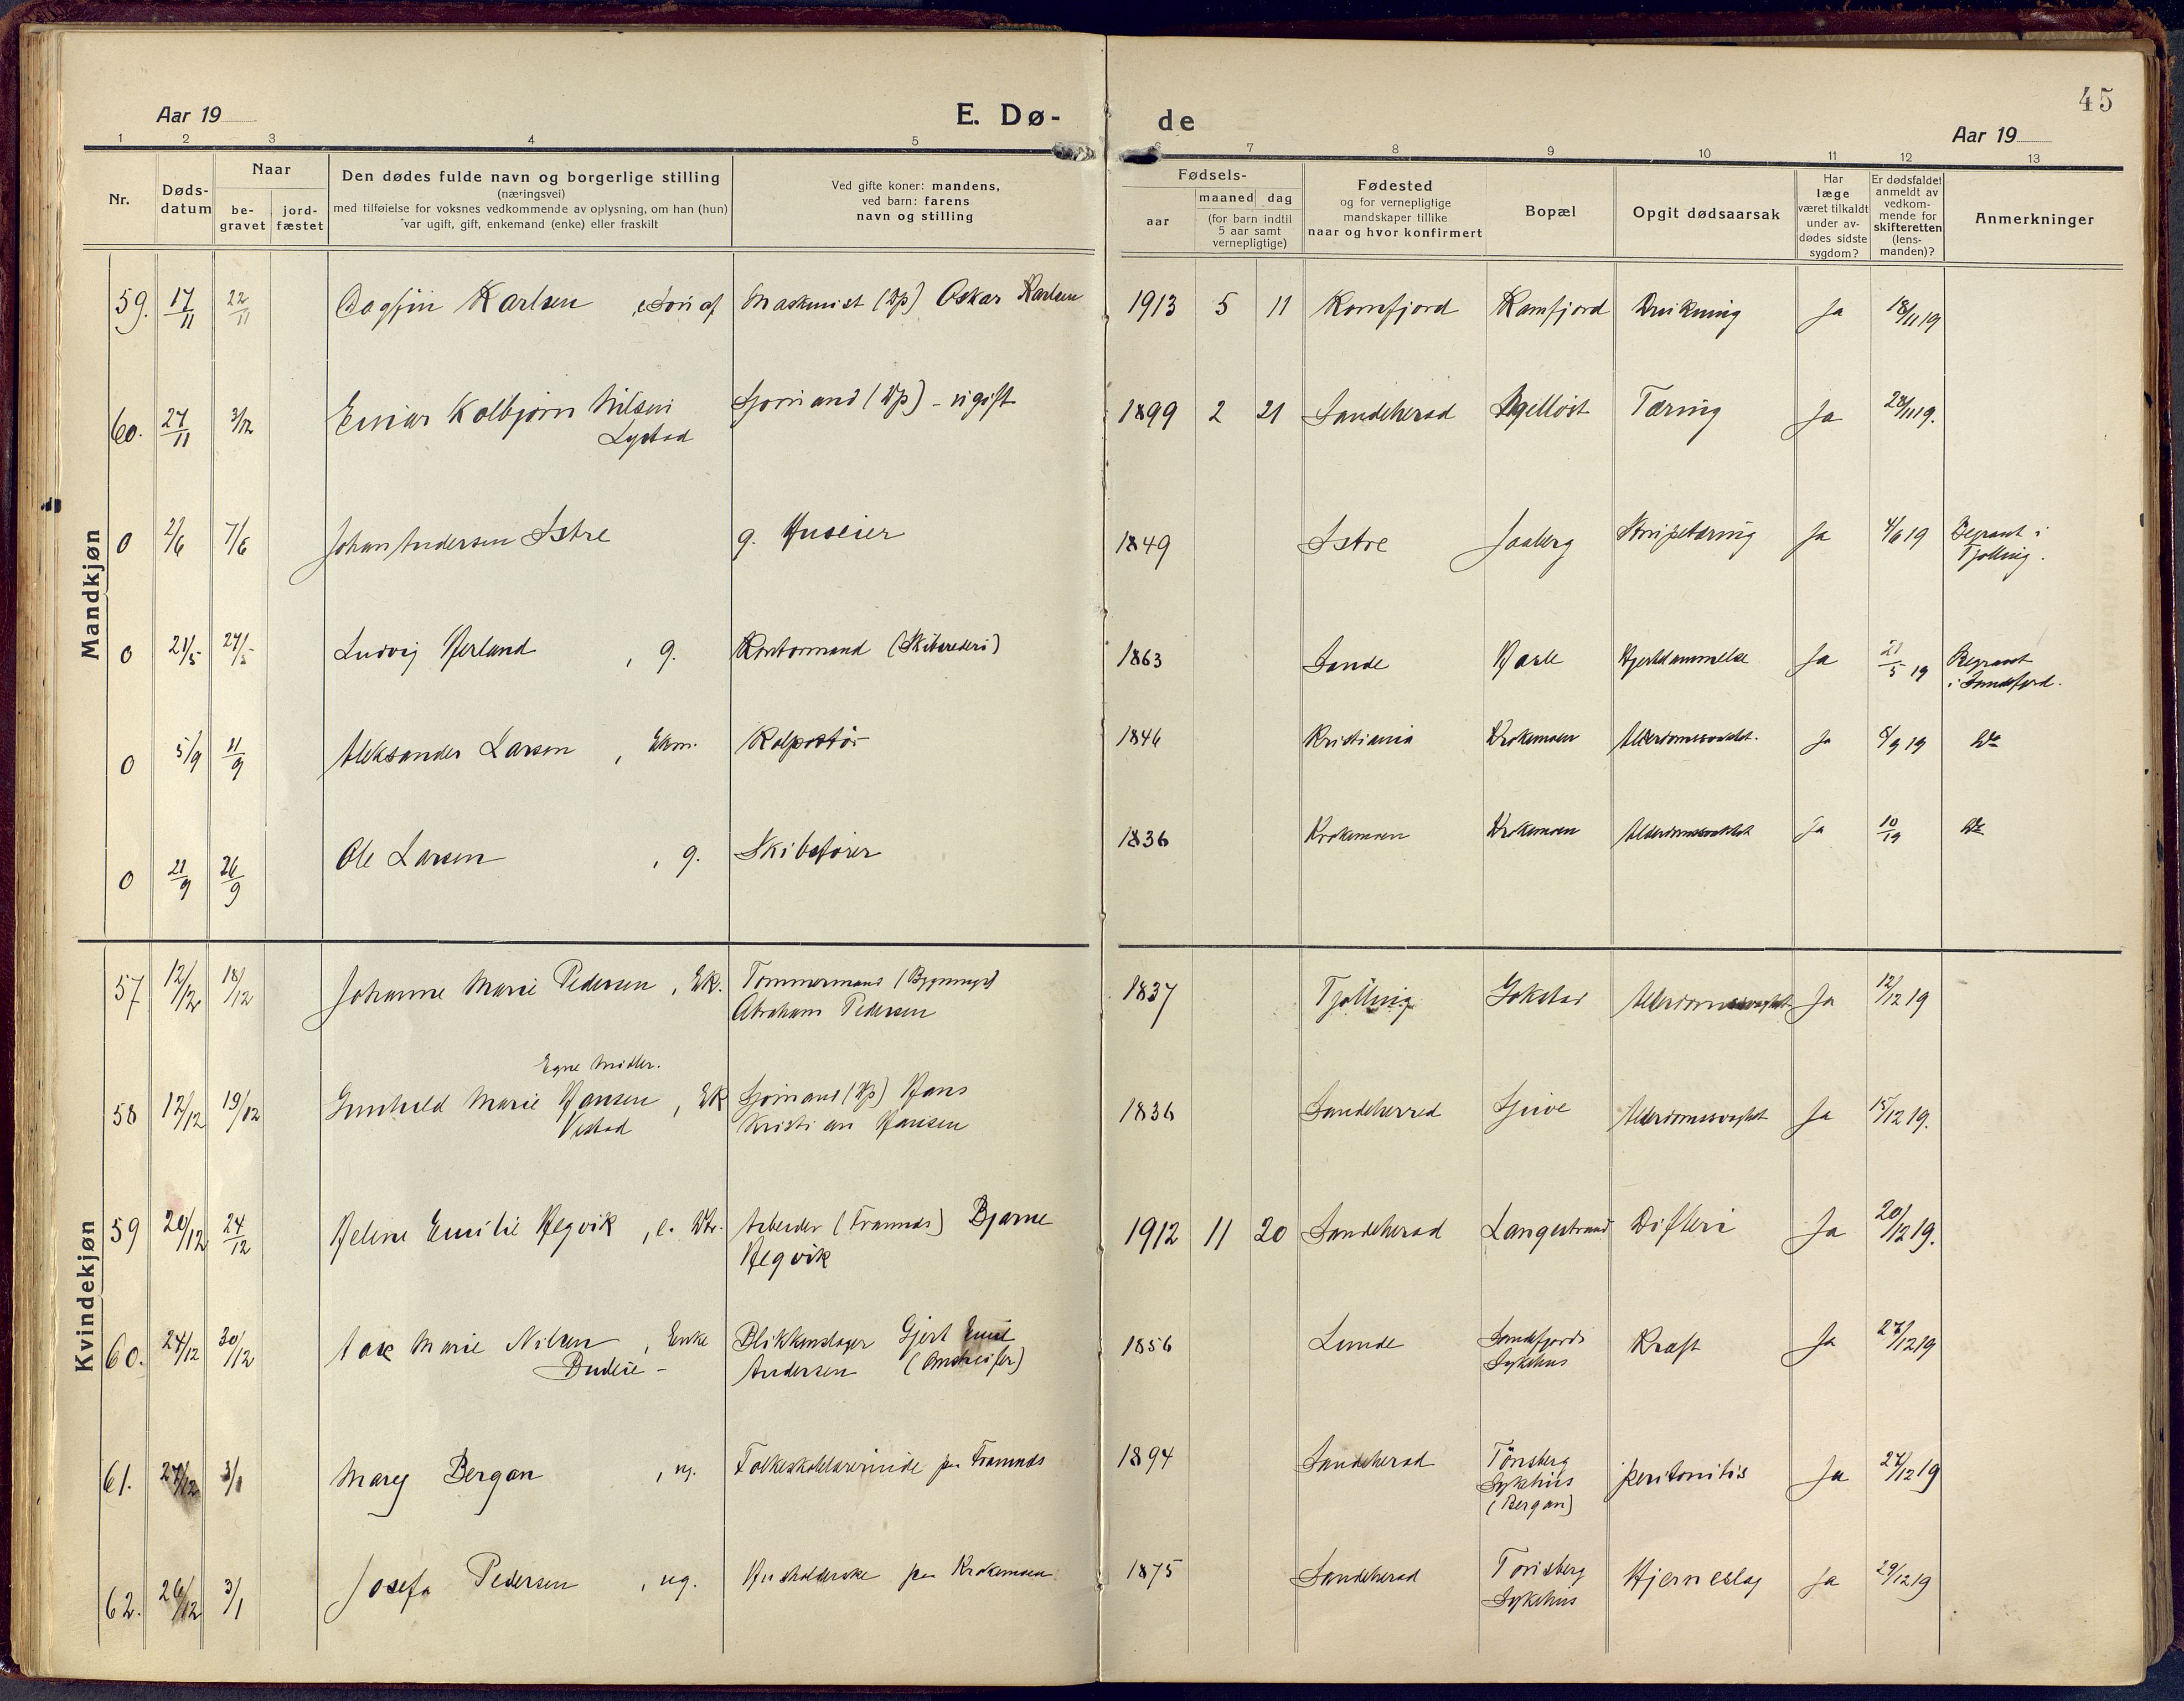 45
Aar 19
E. Dø-
de
Aar 19
1 2 3 4 5
6 7 8 9 10 11 12 13
Nr.
Døds-
datum
Naar
be-
gravet
jord-
fæstet
Den dødes fulde navn og borgerlige stilling
(næringsvei)
med tilføielse for voksnes vedkommende av oplysning, om han (hun)
var ugift, gift, enkemand (enke) eller fraskilt
Ved gifte koner: mandens,
ved barn: farens
navn og stilling
Fødsels-
aar
maaned dag
(for barn indtil
5 aar samt
vernepligtige)
Fødested
og for vernepligtige
mandskaper tillike
naar og hvor konfirmert
Bopæl
Opgit dødsaarsak
Har
læge
været tilkaldt
under av-
dødes sidste
sygdom?
Er dødsfaldet
anmeldt av
vedkom-
mende for
skifteretten
(lens-
manden)?
Anmerkninger
Mandkjøn
59. 17/11 22/11 Dagfin Karlsen, e. Søn af Maskinist (Dp) Oskar Karlsen 1913 5 11 Kamfjord Kamfjord Drukning Ja 18/11 19
60. 27/11 3/12 Einar Kolbjørn Nilsen Sjømand (Dp) - ugift 1899 2 21 Sandeherad Tæring Ja 28/11 19.
Lystad
0 2/6 7/6 Johan Andersen Istre g. Huseier 1849 Istre Jaaberg Strupetæring Ja 4/6 19 Begravt i
Tjølling.
0 21/5 27/5 Ludvig Herland, g. Kontormand (Skibsrederi) 1863 Sande Hasle Hjertelammelse Ja 21/5 19 Begravt
i Sandefjord.
0 5/9 11/9 Aleksander Larsen, Ekm. Kolportør 1846 Kristiania Krokemoen Alderdomssvakhet. Ja 8/9 19 Do
0 21/9 26/9 Ole Larsen, g. Skibsfører 1836 Krokemoen Krokemoen Alderdomssvakhet Ja 10/19 Do
Kvindekjøn
57 12/12 18/12 Johanne Marie Pedersen, Ek. Tømmermand (Bygnings)
Abraham Pedersen 1837 Tjølling Gokstad Alderdomssvaghet Ja 12/12 19
Egne Midler.
58 12/12 19/12 Gunhild Marie Hansen, Ek Sjømand (Dp) Hans
Vestad Kristian Hansen 1836 Sandeherred Ja 15/12 19.
Alderdomssvaghet
59 20/12 24/12 Helene Emilie Hegvik, e. Dtr. Arbeider (Framnæs) Bjarne
Hegvik 1912 11 20 Sandeherad Langestrand Difteri Ja 20/12 19.
60. 24/12 30/12 Marie Nilsen, Enke Blikkenslager Gjert Emil
Budeie - Andersen 1856 Lunde Sandefjords
Sykehus Kræft Ja 27/12 19
61. 27/12 3/1 Mary Bergan, ug. Folkeskolelærerinde paa Framnæs 1894 Sandeherad Tønsberg
Sykehus
(Bergan) peritonitis Ja 27/12 19
62. 26/12 3/1 Josefa Pedersen, ug. Husholderske paa Krokemoen 1875 Sandeherad Tønsberg
Sykehus Hjerneslag Ja 29/12 19